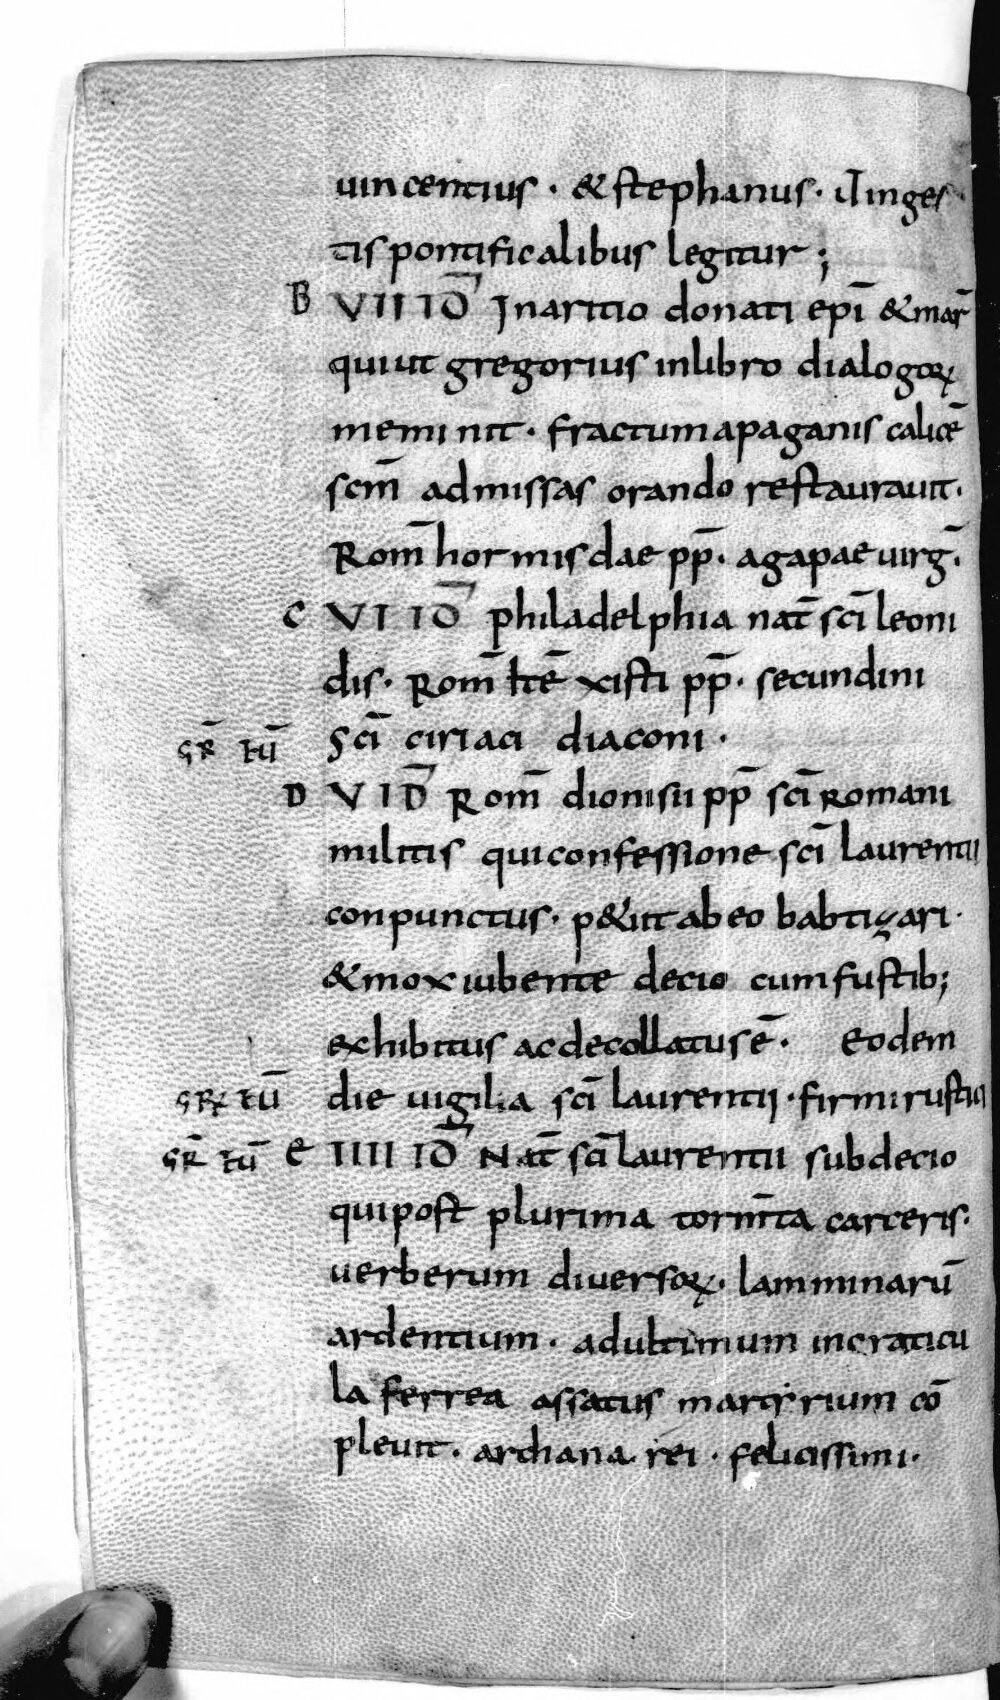 uincentius · & stephanus · ut inges
tis pontificalibus legitur ;
B VII ID In aritio donati epī & mar̄
qui ut gregorius in libro dialogoꝝ
meminit · fractum a paganis calicē
scm̄ ad missas orando restaurauit ·
Rom̄ hormisdae pp̄ · agapae uirḡ ·
C VI ID philadelphia nat̄ scī leoni
dis · Rom̄ xisti pp̄ · secundini
gr̄ tū Scī ciriaci diaconi ·
D V ID Rom̄ dionisii pp̄ scī Romani
militis qui confessione scī laurentii
conpunctus · p&iit ab eo babtizari ·
& mox iubente decio cum fustib;
exhibitus ac decollatus ē · Eodem
gr̄ tū die uigilia scī laurentii · firmi rustici
gr̄ tū E IIII ID Nat̄ scī laurentii sub decio
qui post plurima torm̄ta carceris ·
uerberum diuersoꝝ · lamminarū
ardentium · ad ultimum in craticu
la ferrea assatus martyrium cō
pleuit · archana rei · felicissimi ·